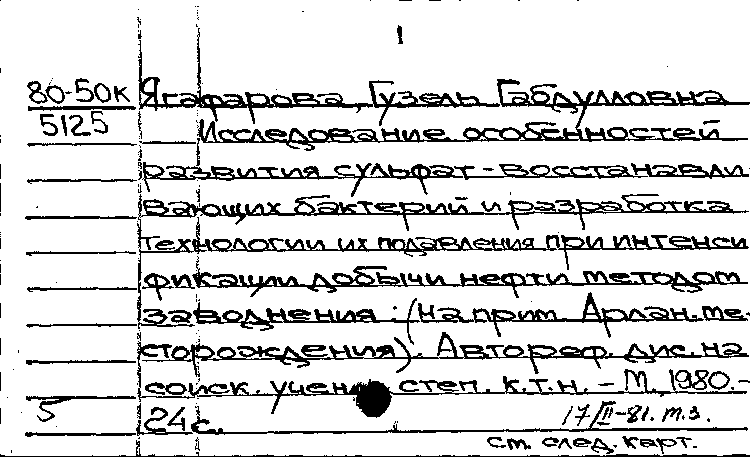 1
80-50к Ягафарова, Гузель Габдулловна
5125 Исследование особенностей
развития сульфат-восстанавли
вающих бактерий и разработка
технологии их подавления при интенси
фикации добычи нефти методом
заводнения: (на прим. Арлан. ме-
сторождения). Автореф. дис. на
соиск. учен. степ. к.т.н. - М., 1980.-
5 24 с. 17/II-81. т.з.
см. след. карт.